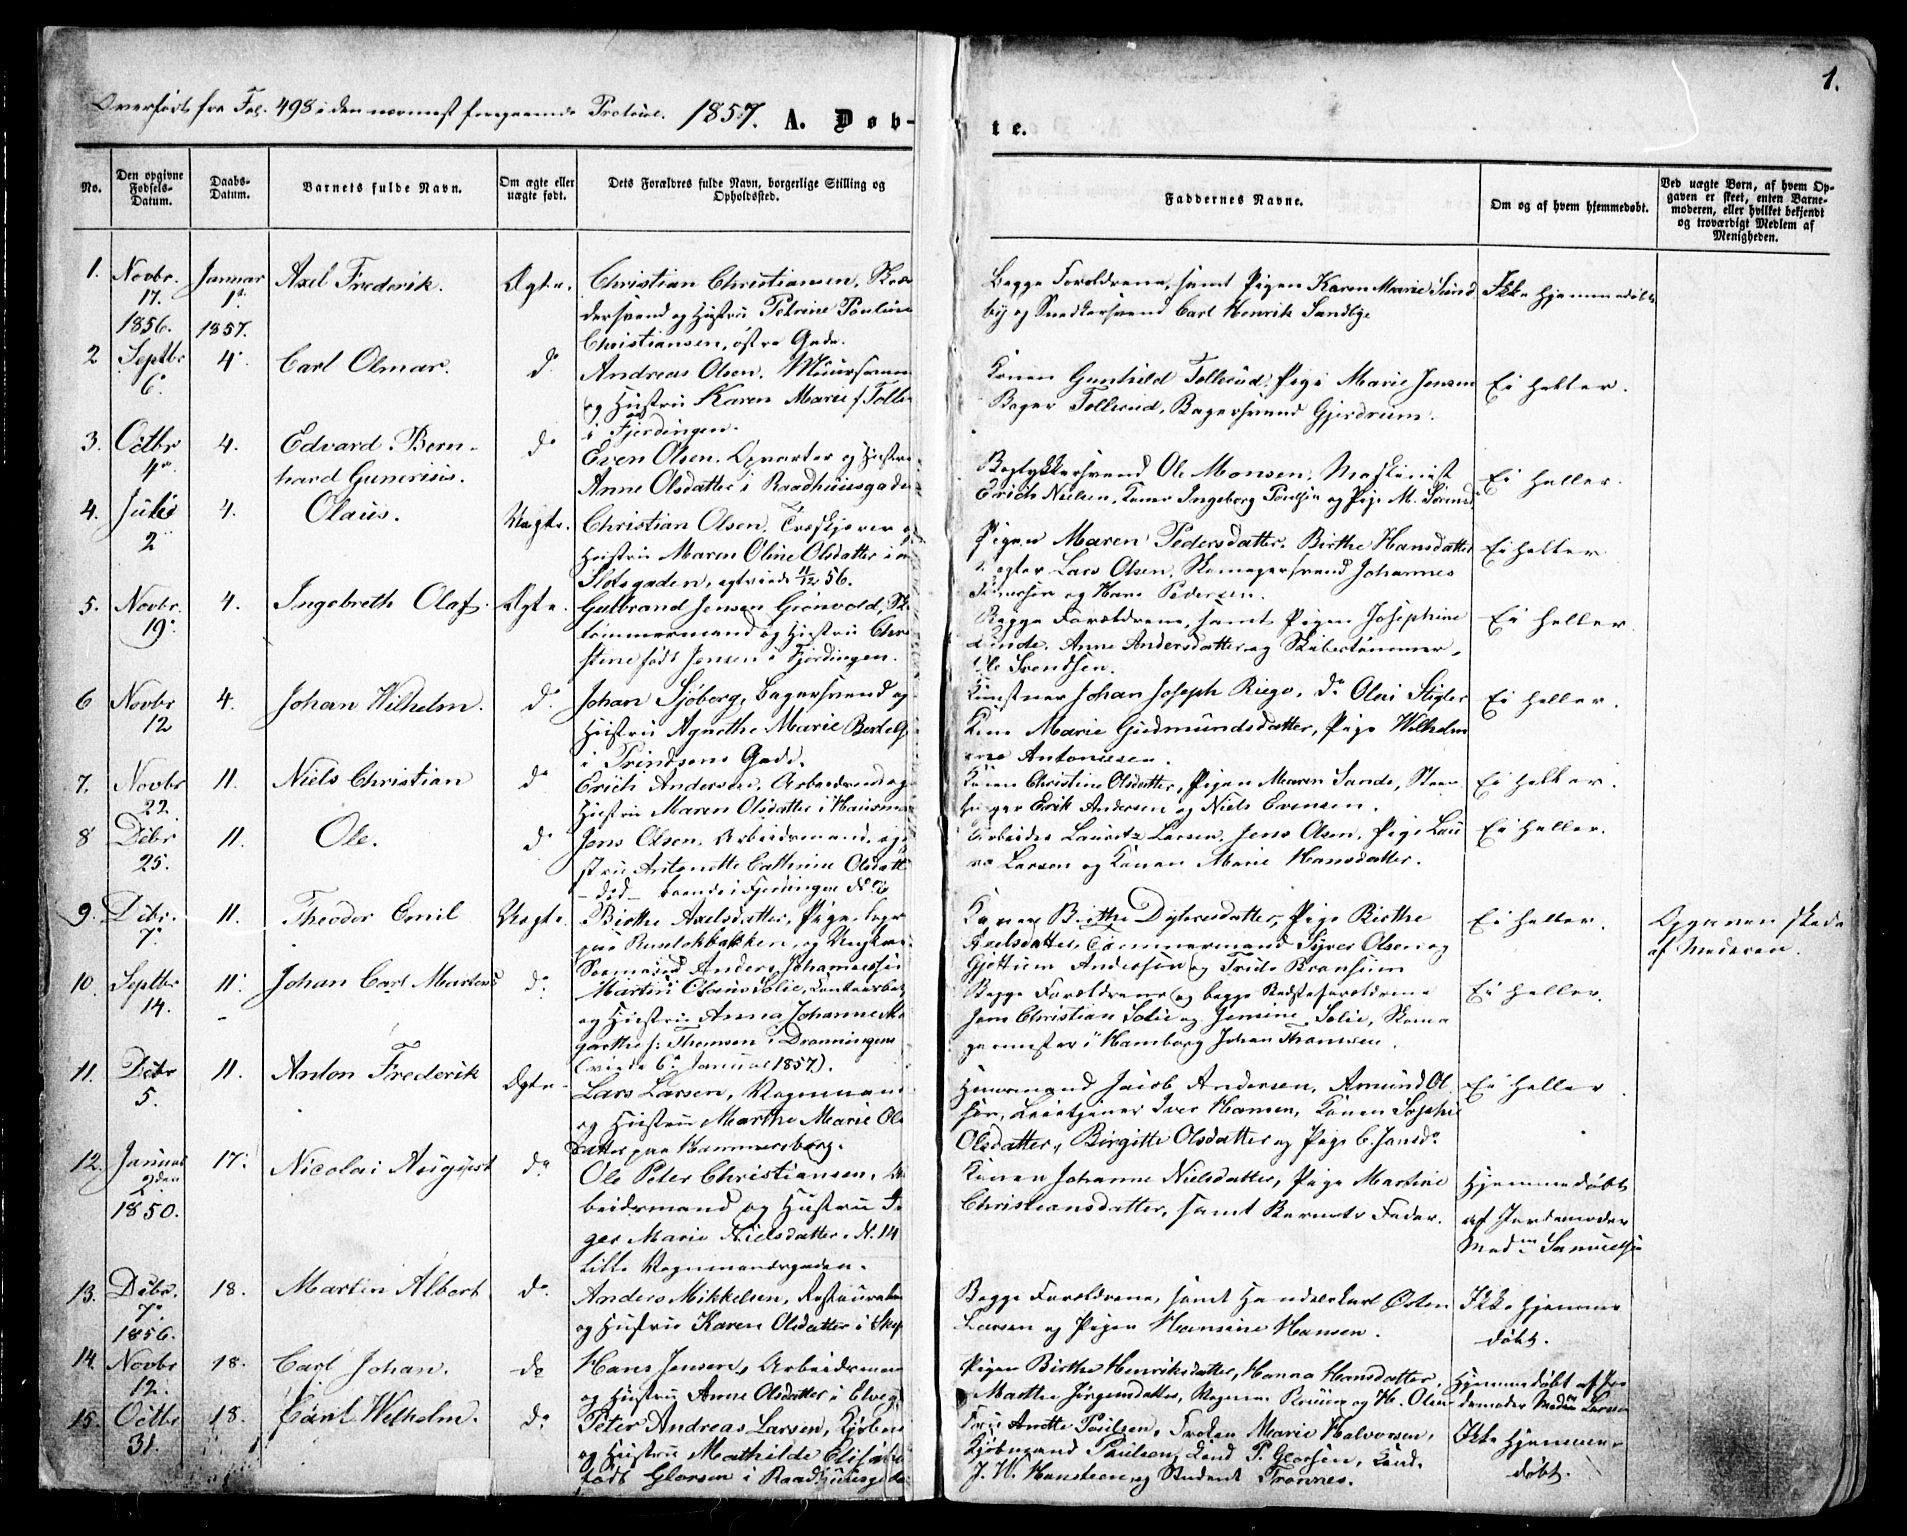 Overført fra Fol. 498 i den nærmest foregaaende Protocol. 1857. A. Døb-
te. 1.
No. Den opgivne Fødsels-Datum. Daabs-Datum. Barnets fulde Navn. Om ægte eller uægte født. Dets Forældres fulde Navn, borgerlige Stilling og Opholdssted.
Faddernes Navne. Om og af hvem hjemmedøbt. Ved uægte Børn, af hvem Opgaven er skeet, enten Barnemoderen, eller hvilket bekjendt og troværdigt Medlem af Menigheden.
1. Novbr. 17. 1856. Januar 1st 1857. Axel Frederik. Ægte. Christian Christiansen, Skræ
dersvend og Hustru Petrine Pauline
Christiansen, østre Gade.
Begge Forældrene, samt Pigen Karen Marie Sund
by og Snedkersvend Carl Henrik Sandbye
Ikke hjemmedøbt
2 Septbr 6. 4. Carl Olmar. do Andreas Olsen, Muursvend
og Hustru Karen Marie f Tolle
i Fjerdingen.
Konen Gunhild Tollesud, Pige Marie Jensen
Bager Tollesud, Bagersvend Gjerdrum.
Ei heller.
3. Octbr 4. 4. Edvard Bern-
hard Gunerius. do Even Olsen, Opvarter og Hustru
Anne Olsdatter i Raadhuusgaden
Bogtrykkersvend Ole Monsen, Maskinist
Erich Nielsen, Kone Ingeborg Poulsen og Pige M.
Ei heller.
4. Juli 2 4. Olaus. Uægte. Christian Olsen, Træskjærer og
Hustru Maren Oline Olsdatter i
Slotsgaden, egtviede 4/12 56.
Pigen Maren Pedersdatter, Birthe Hansdatter
Lars Olsen, Skomagersvend Johannes
og Hans Pedersen.
Ei heller
5. Novbr. 19. 4. Ingebreth Olaf. Ægte. Gulbrand Jensen Grønvold, Sk
tømmermand og Hustru Chri
stine født Jensen i Fjerdingen.
Begge Forældrene, samt Pigen Josephine
Lunde, Anne Andersdatter og Skibstømmer
Ole Svendsen.
Ei heller.
6 Novbr 12 4. Johan Wilhelm. do Johan Sjøberg, Bagersvend og
Hustru Agnethe Marie Bertels
i Prindsens Gade.
Kunstner Johan Joseph Riego, do Olai Stigler
Kone Marie Gudmundsdatter, Pige Wilhelm
ine Antonisen.
Ei heller.
7. Novbr 22. 11. Niels Christian do Erich Andersen, Arbeidsmand og
Hustru Maren Olsdatter i Hausma
Konen Christine Olsdatter, Pigen Maren Sande, Sten
hugger Erik Andersen og Niels Evensen.
Ei heller.
8 Debr 25. 11. Ole. do Jens Olsen, Arbeidsmand, og
stru Antonette Cathrine Olsdatt
død boende i Fjerdingen
Arbeider Lauritz Larsen, Jens Olsen, Pige Lau
ra Larsen og Konen Marie Hansdatter.
Ei heller.
9. Debr. 7. 11. Theodor Emil Uægte. Birthe Axelsdatter, Pige,
paa Ruseløkbakken, og Ungkar
Sømand Anders Johannessen
Konen Birthe Dyhresdatter, Pige Birthe
Axelsdatter, Tømmermand Syver Olsen og
Gjøttum Andersen og Truls Bransum
Ei heller. Opgaven skede
af Moderen.
10. Septbr 14. 11. Johan Carl Martens do Martin Claus Solie, Contoirbetj
og Hustru Anna Johanne Ma
garethe f: Thomsen i Dronningens
(viede 6. Januar 1857).
Begge Forældrene og begge Bedsteforældrene
Jens Christian Solie og Jensine Solie, Skoma
germester i Hamborg Johan Thomsen.
Ei heller.
11. Debr 5. 11. Anton Frederik Ægte. Lars Larsen, Vognmand
og Hustru Marthe Marie Ols
datter paa Hammersborg.
Huusmand Jacob Andersen, Amund Ol
sen, Leietjener Iver Hansen, Konen Sophie
Olsdatter, Birgitte Olsdatter og Pige C. Jansd.
Ei heller
12. Januar 2den 1850. 17. Nicolai August do Ole Peter Christiansen, Ar
beidsmand og Hustru In
ger Marie Nielsdatter N. 14
Lille Vognmandsgaden.
Konen Johanne Nielsdatter, Pige Martine
Christiansdatter, samt Barnets Fader.
Hjemmedøbt
af Jordemoder
Mad. Samuelsen
13. Debr. 7. 1856. 18. Martin Albert do. Anders Mikkelsen, Restauration
og Hustru Karen Olsdatter i Skip
Begge Forældrene, samt Handelskarl Østen
Larsen og Pigen Hansine Hansen.
Ikke hjemme
døbt.
14. Novbr 12. 18. Carl Johan. do Hans Jensen, Arbeidsman
og Hustru Anne Olsdatter i Elveg
Pigen Birthe Henriksdatter, Hanna Hansdatter,
Marthe Jørgensdatter, Vognm og H. Olsen
Hjemmedøbt af Jor
demoder Mad. Larsen
15. Octbr 31. 18. Carl Wilhelm. do Peter Andreas Larsen, Kjøbm
og Hustru Mathilde Elisabe
født Glørsen i Raadhuusgaden
Fru Anette Paulsen, Frøken Marie Halvorsen,
Kjøbmand Paulsen, Cand P. Glørsen, Cand.
J. W. Hansteen og Student Trønnes.
Ikke hjemme
døbt.